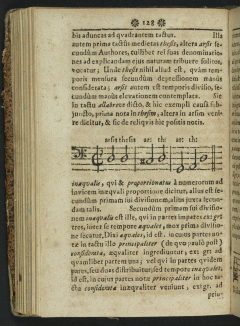 128
bis aduncas ad quadrantem tactus. Illa
autem prima tactûs medietas thesis, altera arsis se-
cundùm Authores, cuilibet rei suas denominatio-
nes ad explicandam ejus naturam tribuere solitos,
vocatur; Unde thesis nihil aliud est, quàm tem-
poris mensura secundùm depressionem manûs
considerata; arsis autem est temporis divisio, se-
cundùm manûs elevationem contemplata. Sic
in tactu allabreve dicto, & hîc exempli causâ sub-
juncto, prima nota in thesim, altera in arsim veni-
re dicitur, & sic de reliquis hîc positis notis.
arsis thesis ar: the: ar: the:
inæqualis, qui & proportionatus à numerorum ad
invicem inæquali proportione dicitur, alius est se-
cundùm primam sui divisionem, alius juxta secun-
dam talis. Secundùm primam sui divisio-
nem inæqualis est ille, qui in partes impares ex: gr:
tres, inter se tempore æquales, mox prima divisio-
ne secatur. Dixi æquales, id est, in quotis partes un-
à in tactu illo principaliter (de quo paulò post)
considerata, æqualiter ingrediuntur, ex: gr: ad
quamlibet partem una; vel qui in partes quidem
pares, seu duas distribuitur, sed tempore inæquales,
id est, in cujus partes notæ principaliter in hoc ta-
ctu consideratæ inæqualiter veniunt, ex: gr. ad